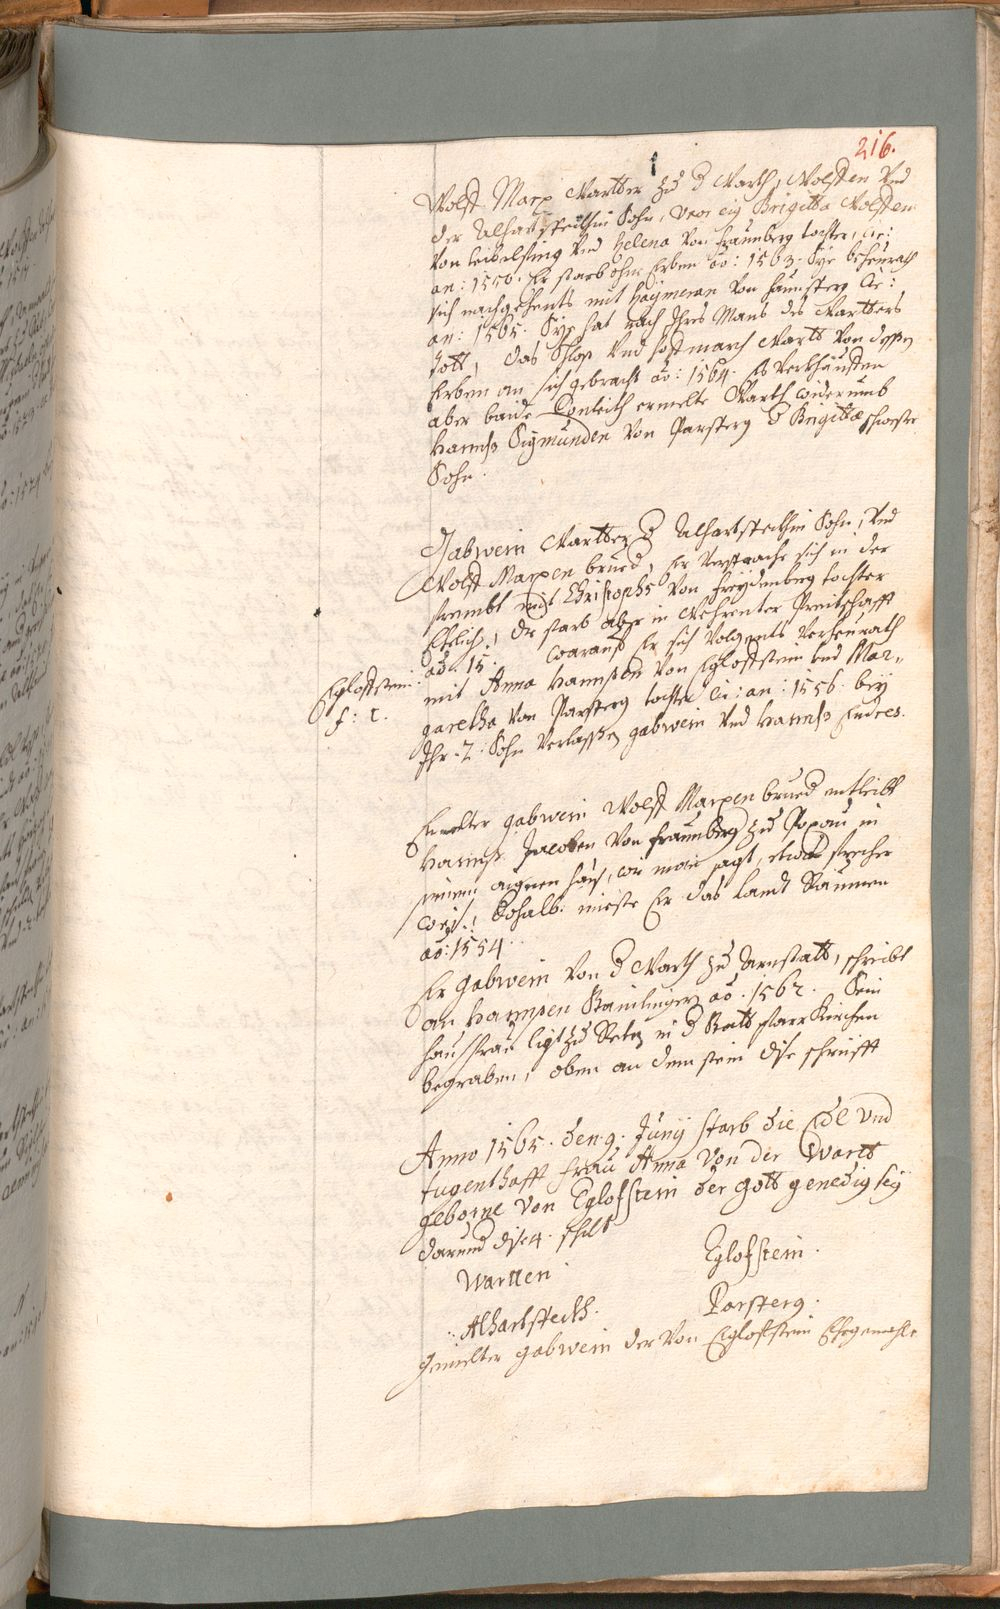 216.
1
Wolff Marx Wartter zu d Warth, Wolffen Vnd
der Alhartsteckhin Sohn, Vxor eig Brigitta Wolffen
Von leibelfing Vnd Helena Von fraunberg tochter, cir:
an: 1556. Er starb ohne Erben ao: 1563. Sye beheurath
sich nachgehents mit Haymeran Von Haunsperg cir:
an: 1565. Sye hat nach Ihres Mans des Wartters
Tott, das Schloß Vnd hoffmarch Wartt Von dessen
Erben an sich gebracht ao: 1564. Es Verkhaufften
aber baide Conleith ermelte Warth widerumb
Hannß Sigmunden Von Parsberg d Brigittæ schwester
Sohn.
Gabwein Wartter d Alhartsteckhin Sohn, Vnd
Wolff Marxen brued, Er Versprache sich in der
frembt mit Christophs Von freydenberg tochter
Ehelich, die starb aber in Wehrenter Preitschafft
ao. 15 . warauf Er sich Volgents Verheurath
Egloffstein:
f: t.
mit Anna Hannsen Von Egloffstein Vnd Mar„
garetha Von Parsberg tochter cir: an: 1556. bey
Ihr .2. Sohn Verlassen gabwein Vnd Hannß Endres.
Ermelter gabwein Wolff Marxen brued entleibt
Hannß Jacoben Von fraunberg zu Poxau in
seinem aignen hauß, wie man sagt, etwas frecher
weiß, deßhalb. mieste Er das landt Raumen
ao: 1554.
Er Gabwein Von d Warth zu Arnstatt, schreibt
an Hannsen ao. 1562. Sein
haußfrau ligt zu in d Statt pfarr Kirchen
begraben, oben an dem stein dise schrifft
Anno 1565. den .9. Juny starb die Edl Vnd
tugenthafft frau Anna Von der Wartt
geborne Von Eglofstein der Gott genedig sey
darund dise 4. schilt
Wartten. Eglofstein.
Alhartsteckh. Parsperg.
gemelter gabwein der Von Egloffstein Ehegemahle